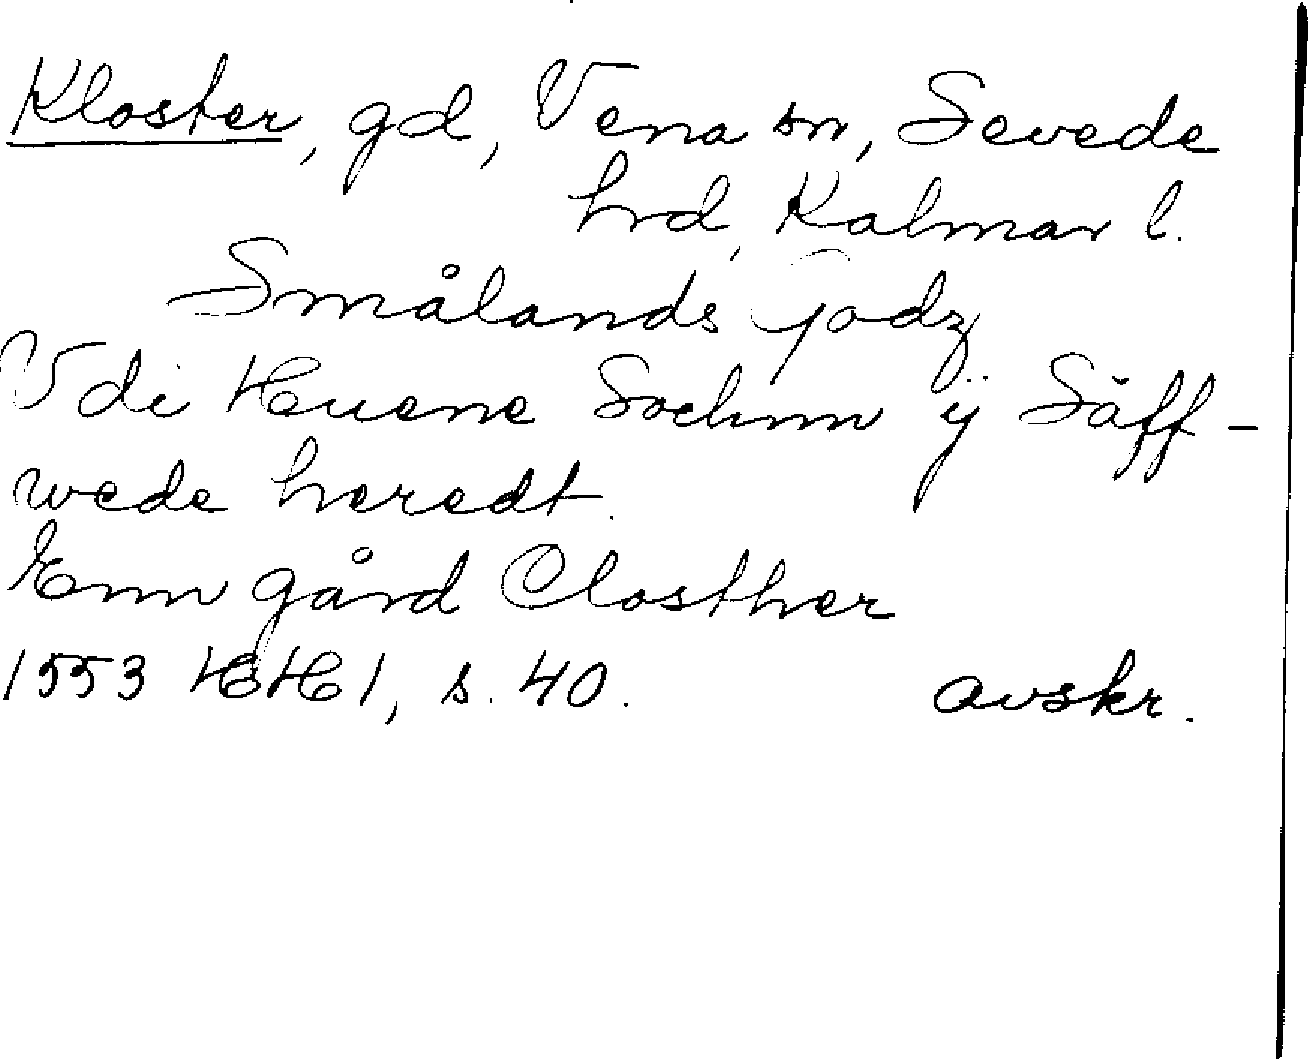 Kloster, gd, Vena sn, Sevede
hrd, Kalmar l.
Smålands godz
Vdi Huene Sochnn ÿ Säff-
wede heredt.
Enn gård Closther
1553 HH 1, s. 40. avskr.